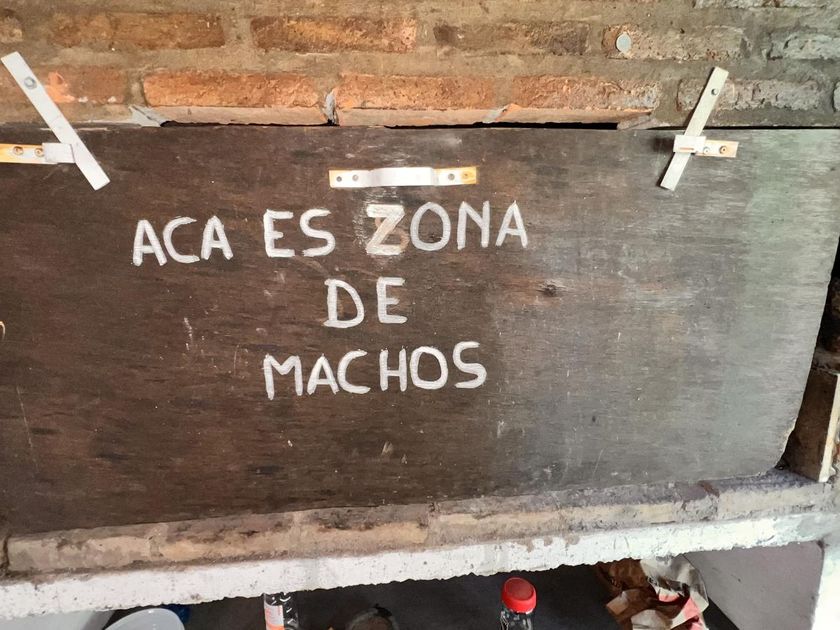 ACA ES ZONA
DE
MACHOS